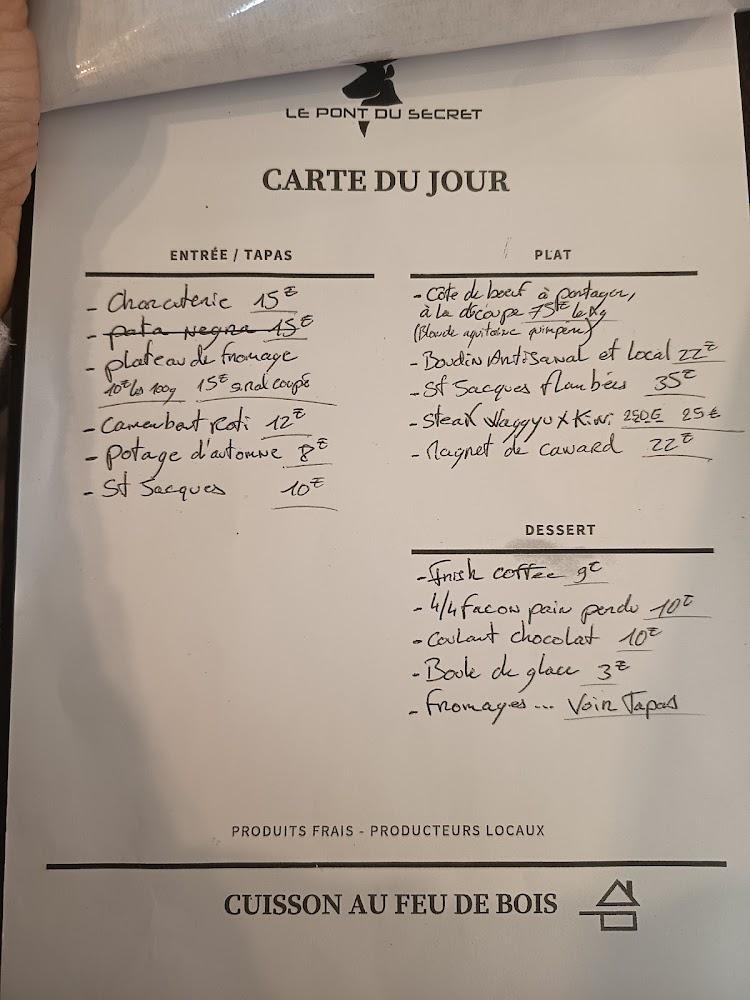 LE PONT DU SECRET
CARTE DU JOUR
ENTRÉE / TAPAS
- Charcuterie 15€
- pata Negra 15€
- plateau de fromage
10€ les 100g 15€
- Camenbert Roti 12€
- potage d'automne 8€
- St Jacques 10€
PLAT
- Côte de boeuf à partager,
à la découpe 75€ le kg
(Blonde aquitaine
- Boudin Artisanal et local 22€
- St Jacques flambées 35€
- Steak Waggyu x Kiwi 250g 25€
- Magret de canard 22€
DESSERT
- Irish coffee 9€
- 4/4 façon pain perdu 10€
- Coulant chocolat 10€
- Boule de glace 3€
- Fromages... Voir Tapas
PRODUITS FRAIS - PRODUCTEURS LOCAUX
CUISSON AU FEU DE BOIS